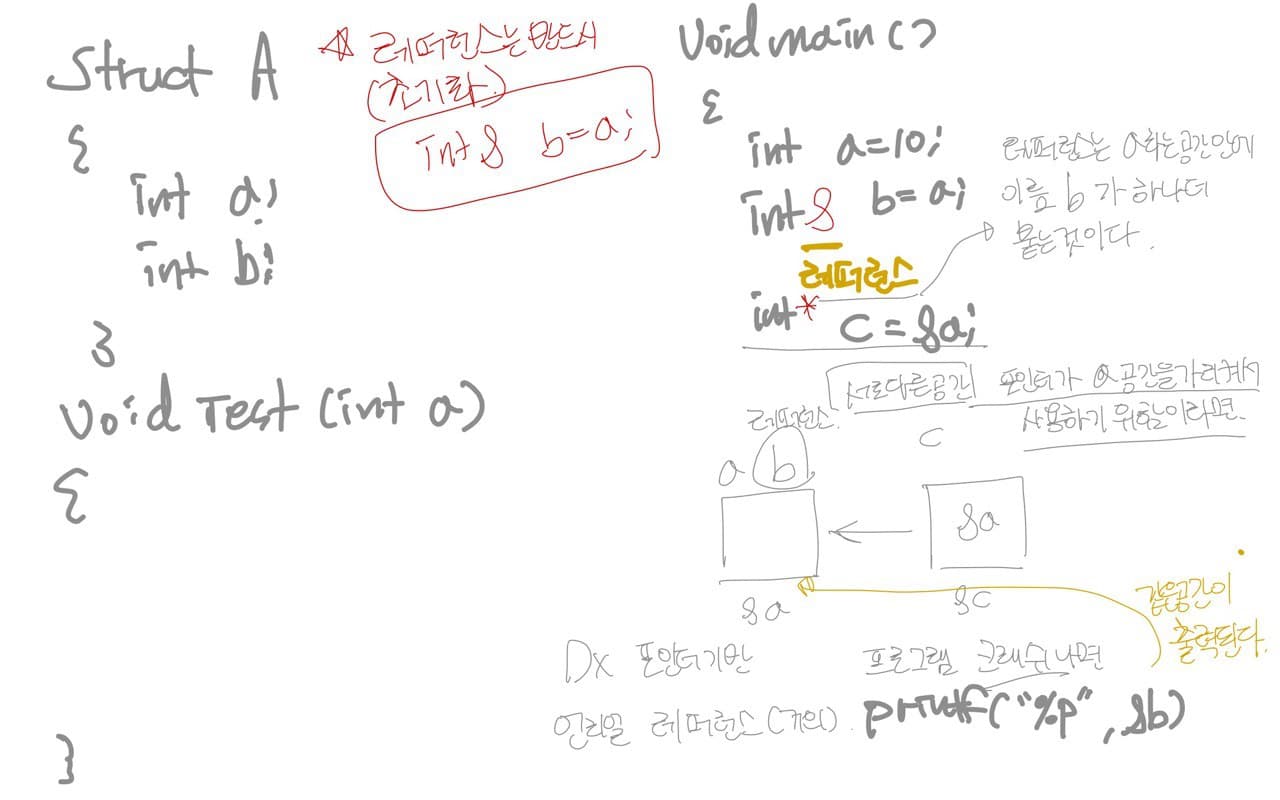 Struct A
{
int a;
int b;
}
Void Test (int a)
{
}
레퍼런스는 반드시
(초기화)
int& b=a;
Void main()
{
int a=10;
int& b=a;
레퍼런스
int* c=&a;
레퍼런스는 a라는 공간안에
이름 b가 하나더
붙는것이다.
서로다른공간
포인터가 a공간을가리켜서
사용하기 위함이라면.
레퍼런스
a b
c
&a
&a
&c
같은공간이
출력된다.
Dx 포인터기반
언리얼 레퍼런스(거의).
프로그램 크래쉬나면
printf("%p", &b)